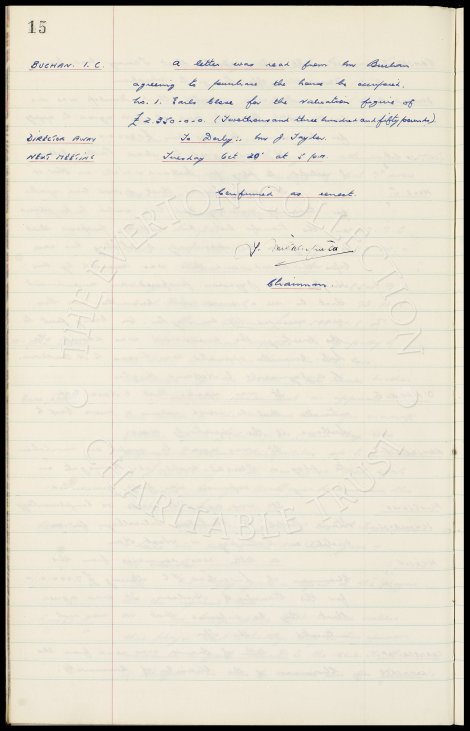 15
BUCHAN. I. C. A letter was read from Mr Buchan
agreeing to purchase the house he occupied,
No. 1. Earls Close for the valuation figure of
£2.350-0-0. (Two thousand and three hundred and fifty pounds)
DIRECTOR AWAY To Derby:- Mr J. Taylor.
NEXT MEETING Tuesday Oct 29' at 5 pm
Confirmed as correct.
Chairman.
© THE EVERTON COLLECTION
CHARITABLE TRUST